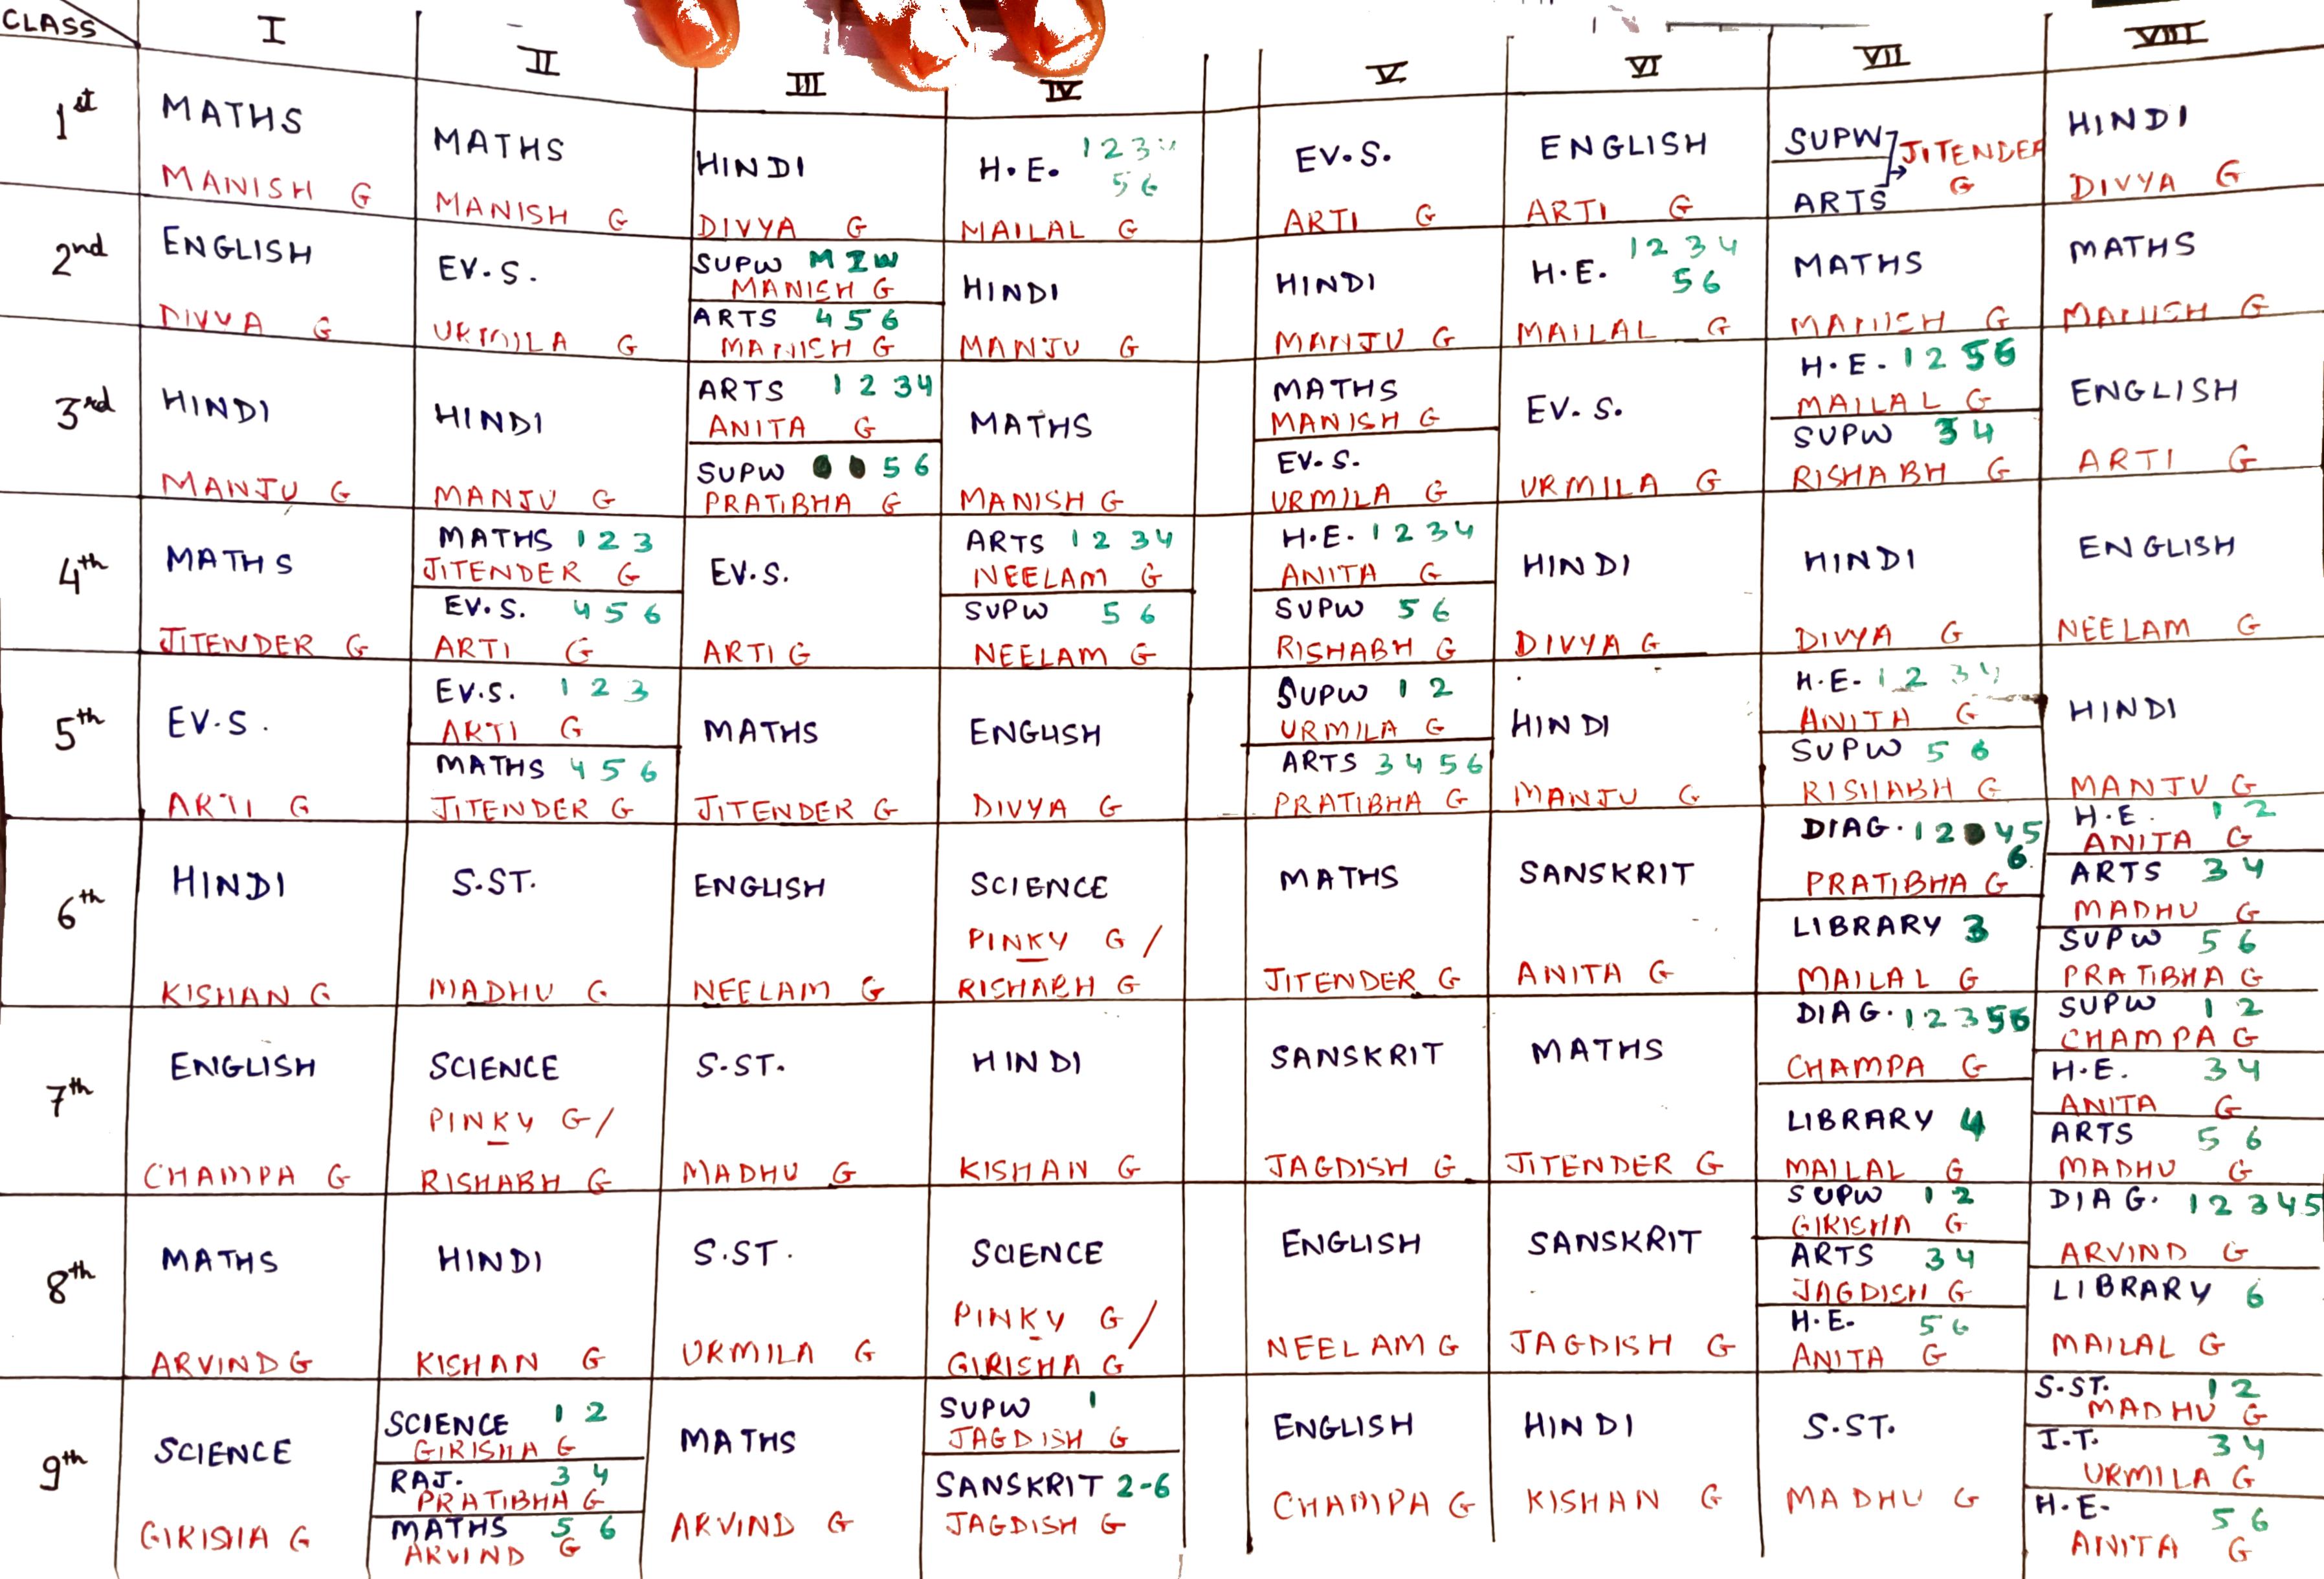 CLASS I II III IV V VI VII VIII
1st
MATHS
MANISH G
MATHS
MANISH G
HINDI
DIVYA G
H.E. 1 2 3
5 6
MAILAL G
EV.S.
ARTI G
ENGLISH
ARTI G
SUPW
ARTS
JITENDER
G
HINDI
DIVYA G
2nd
ENGLISH
DIVYA G
EV.S.
URMILA G
SUPW M I W
MANISH G
ARTS 4 5 6
MANISH G
HINDI
MANJU G
HINDI
MANJU G
H.E. 1 2 3 4
5 6
MAILAL G
MATHS
MANISH G
MATHS
MANISH G
3rd
HINDI
MANJU G
HINDI
MANJU G
ARTS 1 2 3 4
ANITA G
SUPW 5 6
PRATIBHA G
MATHS
MANISH G
MATHS
MANISH G
EV.S.
URMILA G
EV.S.
URMILA G
H.E. 1 2 5 6
MAILAL G
SUPW 3 4
RISHABH G
ENGLISH
ARTI G
4th
MATHS
JITENDER G
MATHS 1 2 3
JITENDER G
EV.S. 4 5 6
ARTI G
EV.S.
ARTI G
ARTS 1 2 3 4
NEELAM G
SUPW 5 6
NEELAM G
H.E. 1 2 3 4
ANITA G
SUPW 5 6
RISHABH G
HINDI
DIVYA G
HINDI
DIVYA G
ENGLISH
NEELAM G
5th
EV.S.
ARTI G
EV.S. 1 2 3
ARTI G
MATHS 4 5 6
JITENDER G
MATHS
JITENDER G
ENGLISH
DIVYA G
SUPW 1 2
URMILA G
ARTS 3 4 5 6
PRATIBHA G
HINDI
MANJU G
H.E. 1 2 3 4
ANITA G
SUPW 5 6
RISHABH G
HINDI
MANJU G
6th
HINDI
KISHAN G
S.ST.
MADHU G
ENGLISH
NEELAM G
SCIENCE
PINKY G /
RISHABH G
MATHS
JITENDER G
SANSKRIT
ANITA G
DIAG. 1 2 4 5
6
PRATIBHA G
LIBRARY 3
MAILAL G
H.E. 1 2
ANITA G
ARTS 3 4
MADHU G
SUPW 5 6
PRATIBHA G
7th
ENGLISH
CHAMPA G
SCIENCE
PINKY G /
RISHABH G
S.ST.
MADHU G
HINDI
KISHAN G
SANSKRIT
JAGDISH G
MATHS
JITENDER G
DIAG. 1 2 3 5 6
CHAMPA G
LIBRARY 4
MAILAL G
SUPW 1 2
CHAMPA G
H.E. 3 4
ANITA G
ARTS 5 6
MADHU G
8th
MATHS
ARVIND G
HINDI
KISHAN G
S.ST.
URMILA G
SCIENCE
PINKY G /
GIRISHA G
ENGLISH
NEELAM G
SANSKRIT
JAGDISH G
SUPW 1 2
GIRISHA G
ARTS 3 4
JAGDISH G
H.E. 5 6
ANITA G
DIAG. 1 2 3 4 5
ARVIND G
LIBRARY 6
MAILAL G
9th
SCIENCE
GIRISHA G
SCIENCE 1 2
GIRISHA G
RAJ. 3 4
PRATIBHA G
MATHS 5 6
ARVIND G
MATHS
ARVIND G
SUPW 1
JAGDISH G
SANSKRIT 2-6
JAGDISH G
ENGLISH
CHAMPA G
HINDI
KISHAN G
S.ST.
MADHU G
S.ST. 1 2
MADHU G
I.T. 3 4
URMILA G
H.E. 5 6
ANITA G